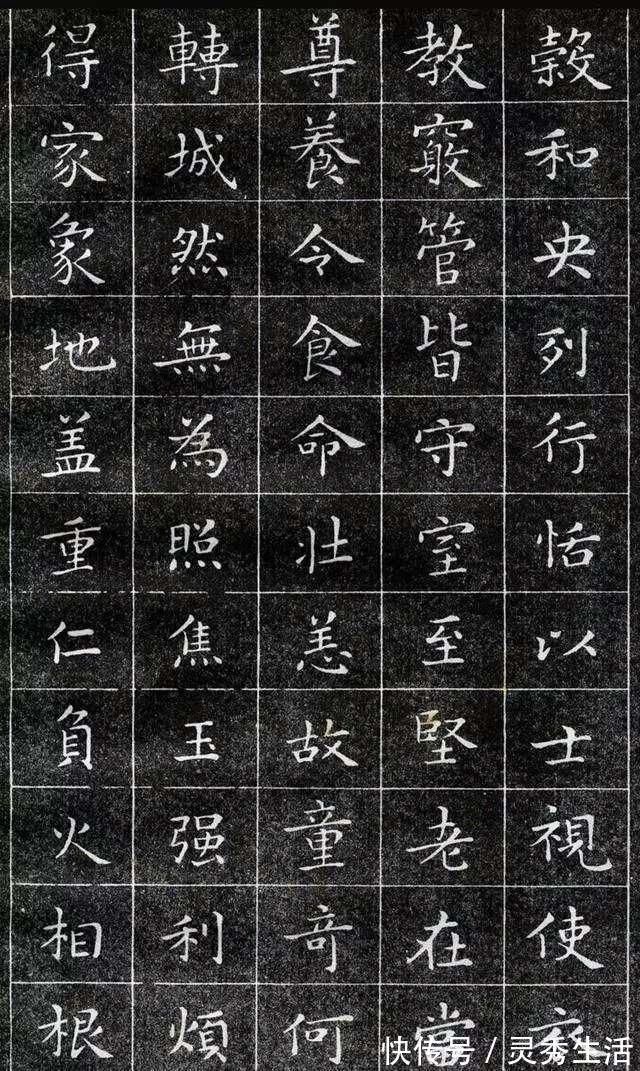 穀和央列行恬以士視使
教竅管皆守室至堅老在當
尊養令食命壯恙故童奇何
轉城然無為照焦玉强利煩
得家象地盖重仁負火相根
快传号/灵秀生活